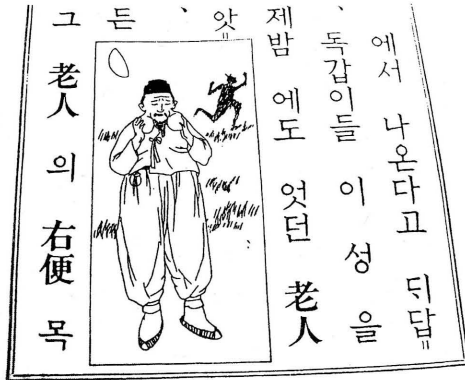 에서 나온다고 ᄃᆡ답
、독갑이들이 성을
제밤에도 엇던 老人
앗
、든
그 老人의 右便 목